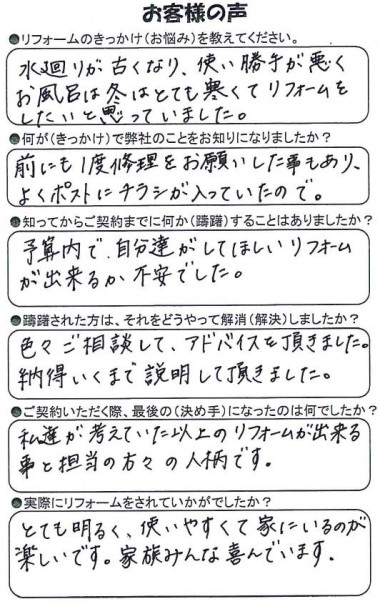 お客様の声
●リフォームのきっかけ(お悩み)を教えてください。
水廻りが古くなり、使い勝手が悪く
お風呂は冬はとても寒くてリフォームを
したいと思っていました。
●何が(きっかけ)で弊社のことをお知りになりましたか?
前にも1度修理をお願いした事もあり、
よくポストにチラシが入っていたので。
●知ってからご契約までに何か(躊躇)することはありましたか?
予算内で、自分達がしてほしいリフォーム
が出来るか、不安でした。
●躊躇された方は、それをどうやって解消(解決)しましたか?
色々ご相談して、アドバイスを頂きました。
納得いくまで説明して頂きました。
●ご契約いただく際、最後の(決め手)になったのは何でしたか?
私達が考えていた以上のリフォームが出来る
事と担当の方々の人柄です。
●実際にリフォームをされていかがでしたか?
とても明るく、使いやすくて家にいるのが
楽しいです。家族みんな喜んでいます.